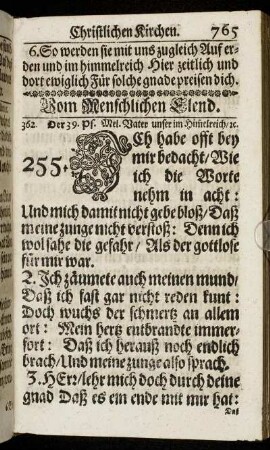 Christlichen Kirchen. 765
6. So werden sie mit uns zugleich Auf er-
den und im himmelreich Hier zeitlich und
dort ewiglich Für solche gnade preisen dich.
Vom Menschlichen Elend.
362. Der 39. Ps. Mel. Vater unser im Himelreich, ⁊c.
255. ICh habe offt bey
mir bedacht / Wie
ich die Worte
nehm in acht:
Und mich damit nicht gebe bloß / Daß
meine zunge nicht verstoß: Denn ich
wol sahe die gefahr / Als der gottlose
für mir war.
2. Ich zäumete auch meinen mund /
Daß ich fast gar nicht reden kunt:
Doch wuchs der schmertz an allem
ort: Mein hertz entbrandte immer-
fort: Daß ich herauß noch endlich
brach / Und meine zunge also sprach.
3. HErr / lehr mich doch durch deine
gnad Daß es ein ende mit mir hat:
Daß